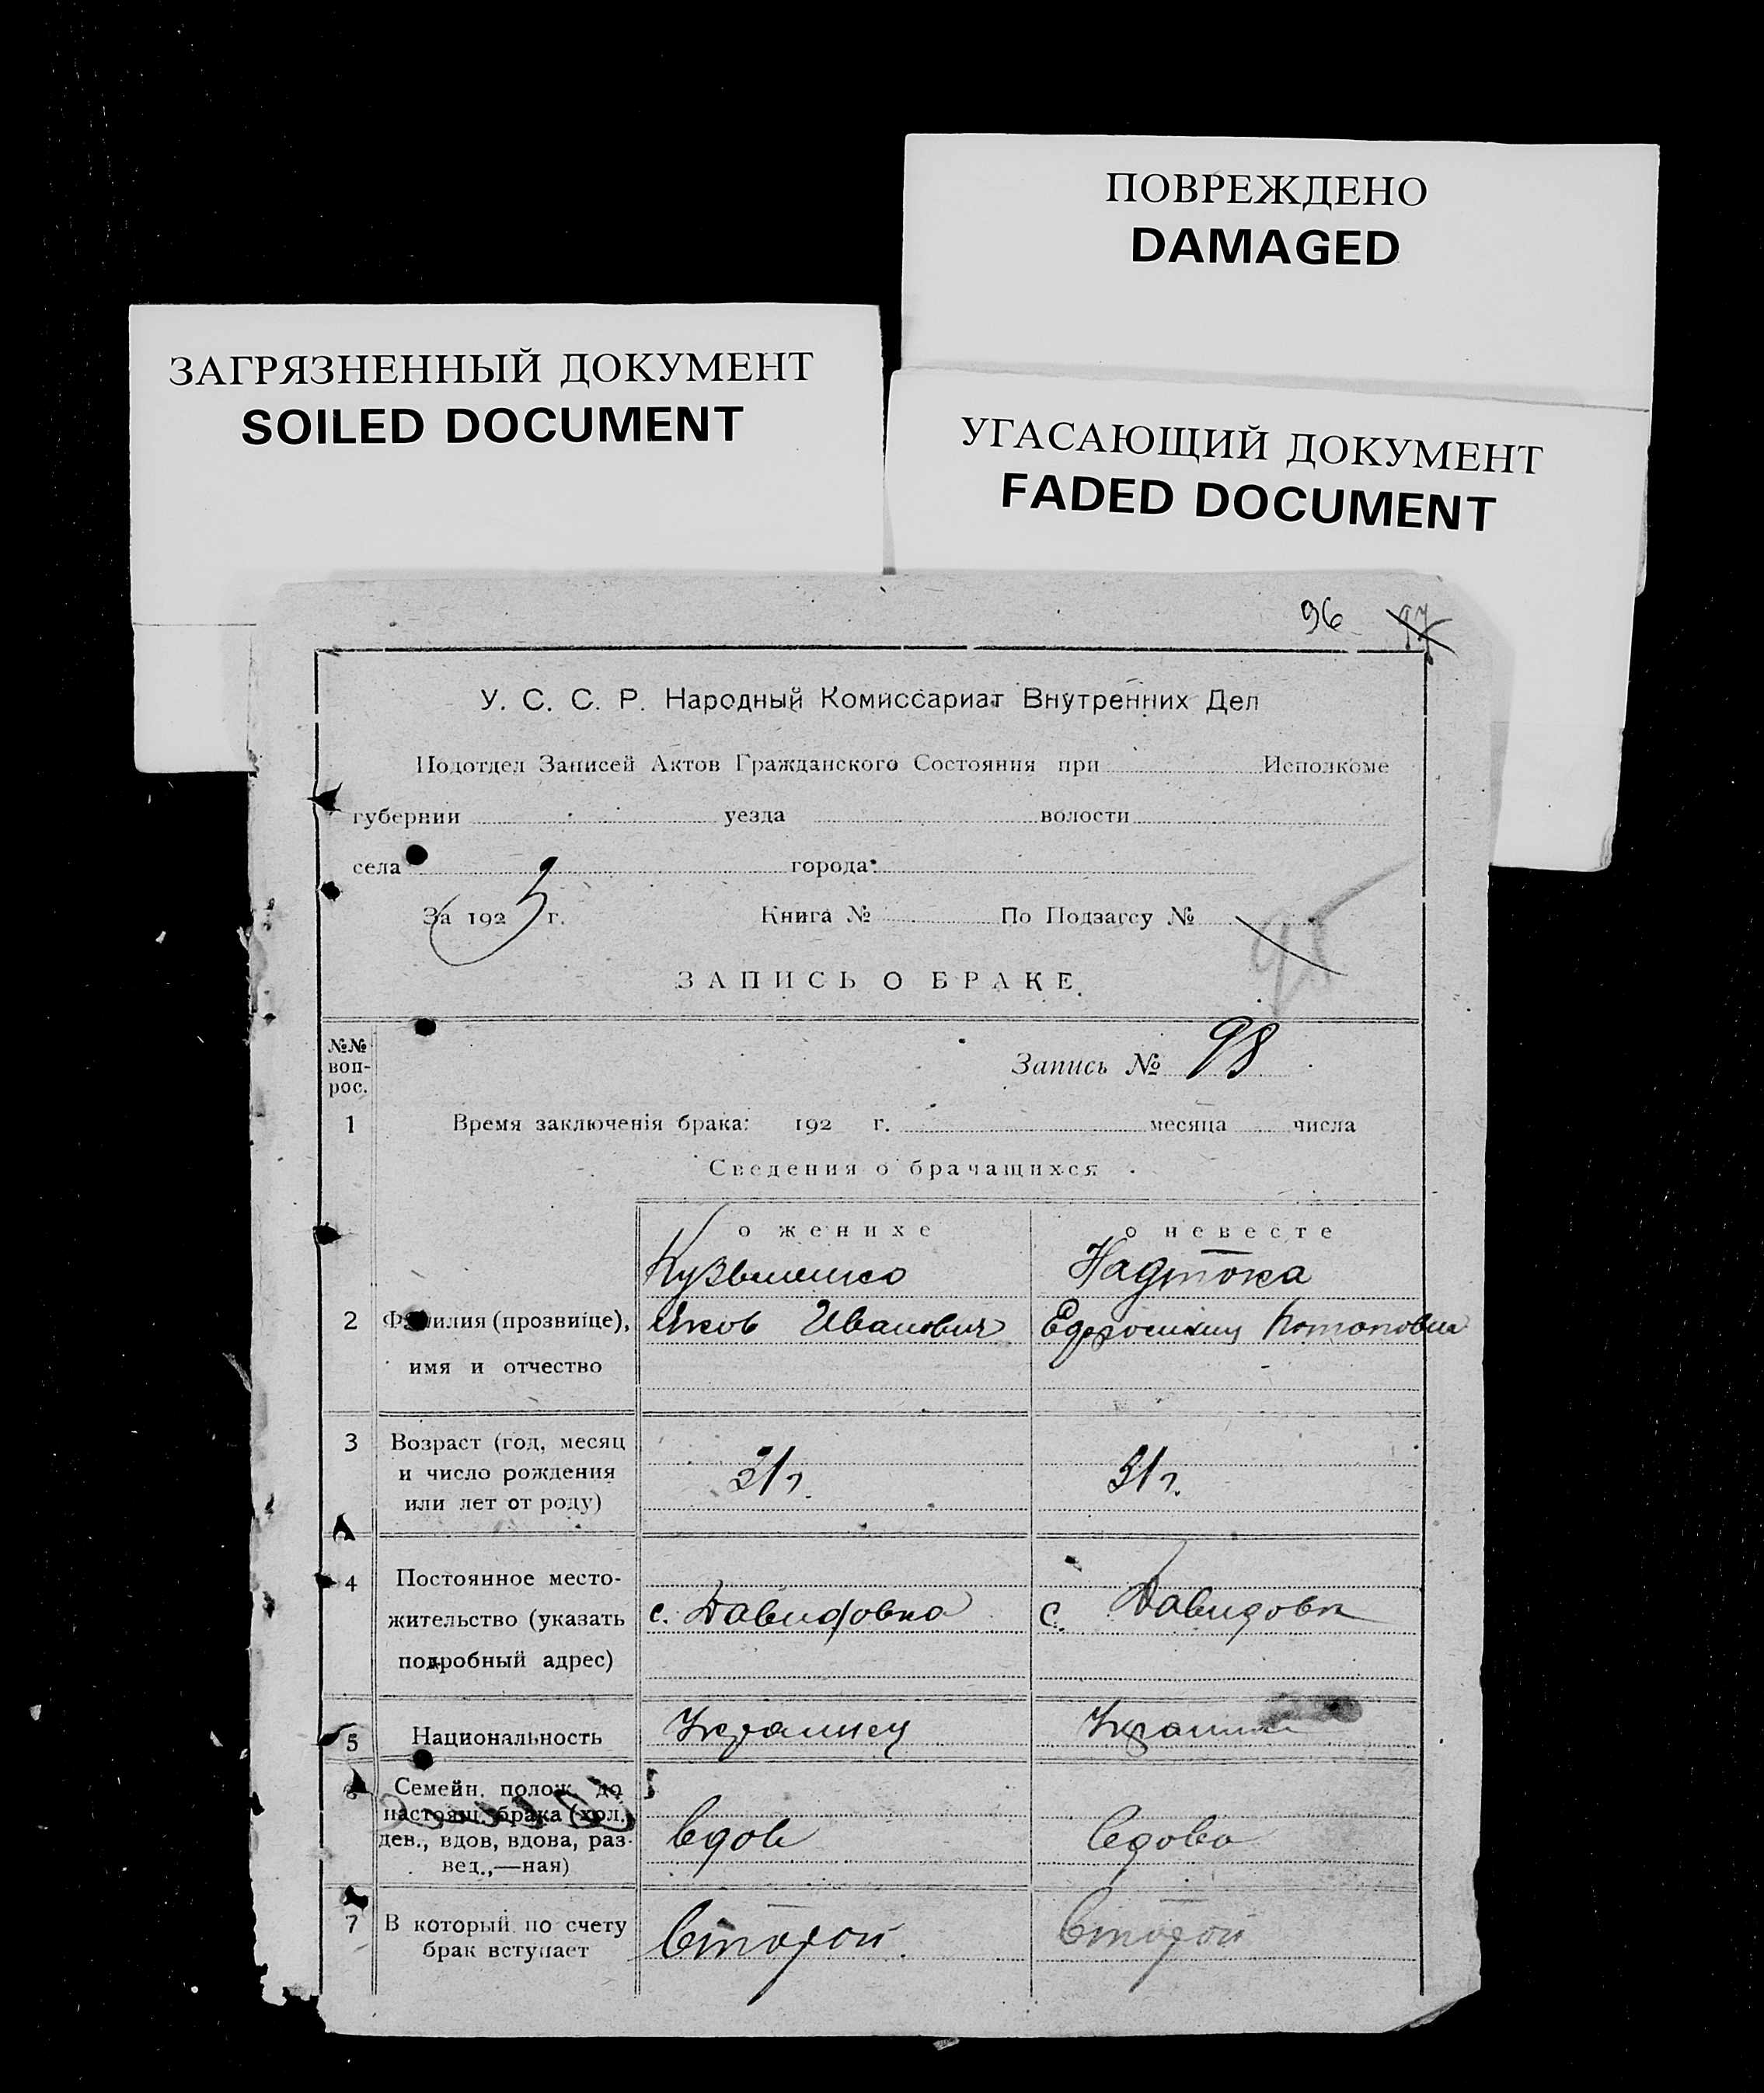 ПОВРЕЖДЕНО
DAMAGED
ЗАГРЯЗНЕННЫЙ ДОКУМЕНТ
SOILED DOCUMENT
УГАСАЮЩИЙ ДОКУМЕНТ
FADED DOCUMENT
96 97
У. С. С. Р. Народный Комиссариат Внутренних Дел
Подотдел Записей Актов Гражданского Состояния при Исполкоме
губернии уезда волости
села города
За 1923 г. Книга № По Подзагсу №
98
ЗАПИСЬ О БРАКЕ.
№№ воп-рос.
Запись № 98
1 Время заключенія брака: 192 г. месяца числа
Сведения о брачащихся
о женихе о невесте
Кузьменко Надтока
2 Фамилия (прозвище), Яков Иванович Потаповна
имя и отчество
3 Возраст (год, месяц
и число рождения 31 г. 31 г.
или лет от роду)
4 Постоянное место-
жительство (указать с. Давидовка с. Давидовк
подробный адрес)
5 Национальность Украинец
6 Семейн. полож. до
настоящ. брака (хол.,
дев., вдов, вдова, раз- вдов вдова
вед.,—ная)
7 В который по счету второй. второй
брак вступает